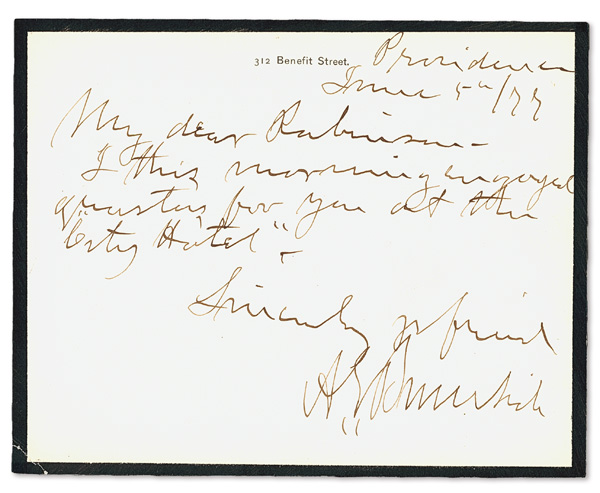 312 Benefit Street.
Providence
June 5th/77
My dear Robinson -
I this morning engaged
quarters for you at the
"City Hotel" -
Sincerely yr friend
A E Burnside